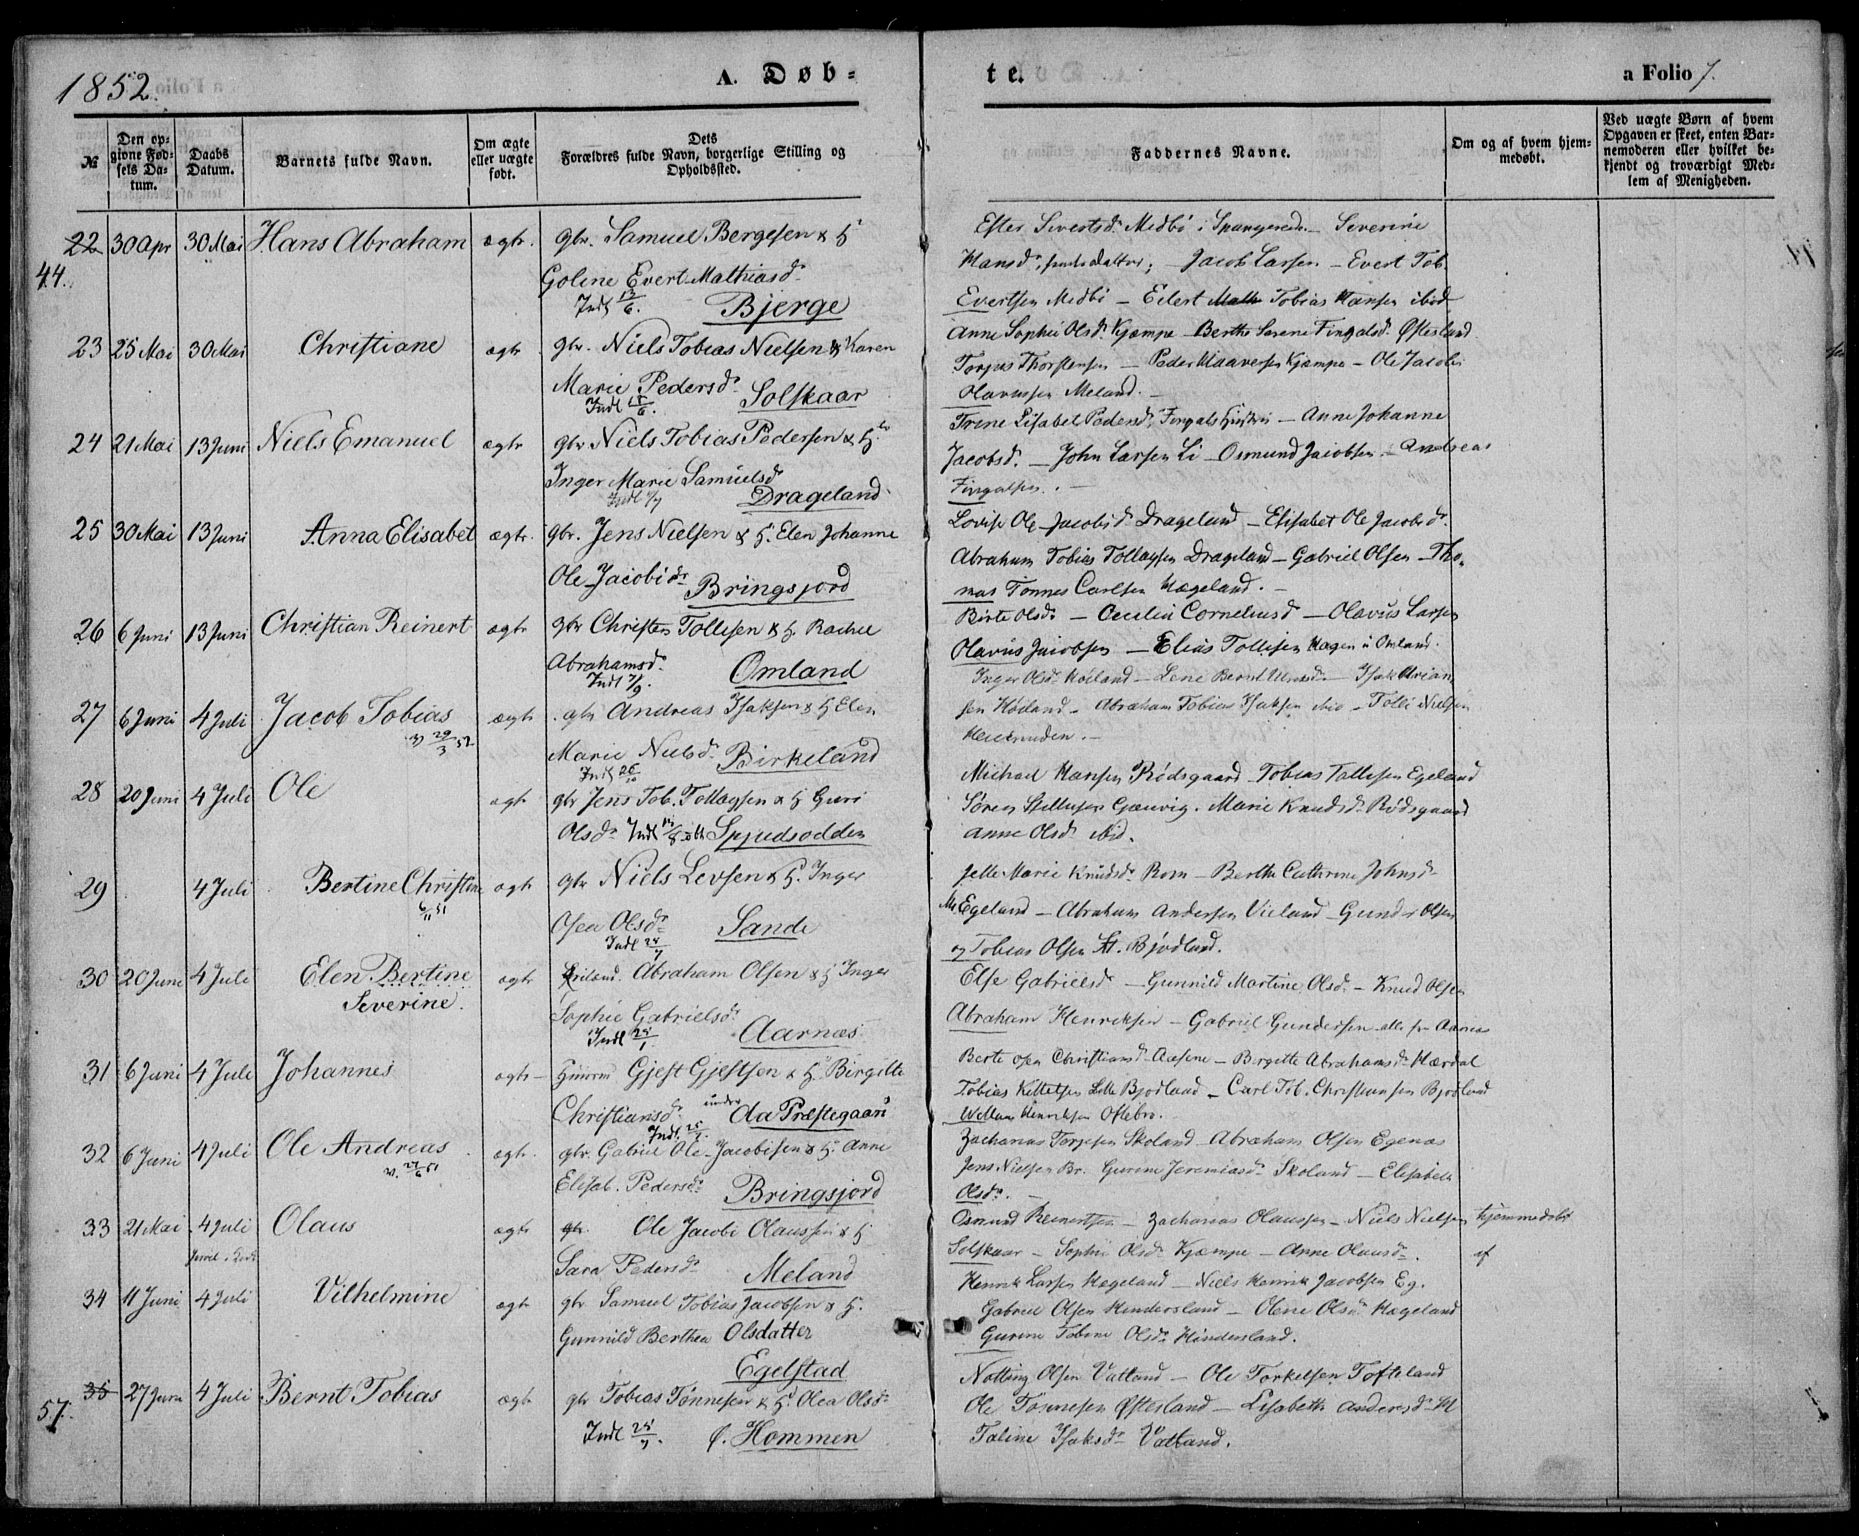 1852.
A. Døb-
te.
a Folio 7.
№
Den opgivne Fødsels Datum.
Daabs Datum.
Barnets fulde Navn.
Om ægte eller uægte født.
Dets Forældres fulde Navn, borgerlige Stilling og Opholdssted.
Faddernes Navne.
Om og af hvem hjemmedøbt.
Ved uægte Børn af hvem Opgaven er skeet, enten Barnemoderen eller hvilket bekjendt og troværdigt Medlem af Menigheden.
22 30 Apr 30 Mai Hans Abraham ægte. gbr. Samuel Bergesen & H
44. Goline Evert-Mathiasdr
Indl 13/6. Bjerge
Sivertsdr Medbö i Spangereid - Severine
Hansdr, Jacob Larsen - Evert Tob.
Evertsen Medbö - Eilert Tobias Hansen ibid
23 25 Mai 30 Mai Christiane ægte gbr. Niels Tobias Nielsen & Karen
Marie Pedersdr
Indl Solskaar
Anne Sophie Olsdr Kjæmpe - Berthe Serene Fingalsdr Øftesland
Torjus Thorstensen - Peder Haaversen Kjæmpe - Ole Jacob
Olaussen Meland.
24 21 Mai 13 Juni Niels Emanuel ægte gbr Niels Tobias Pedersen & H.
Inger Marie Samuelsdr
Indl Drageland
Trine Lisabet Pedersdr, Fingals Hustru - Anne Johanne
Jacobsd. - John Larsen Li - Osmund Jacobsen - Andreas
Fingalsen.
25 30 Mai 13 Juni Anna Elisabet ægte. gbr. Jens Nielsen & H. Elen Johanne
Ole-Jacobsdr Bringsjord
Lovise Ole-Jacobsdr Drageland - Elisabet Ole Jacobsdr
Abraham Tobias Tollagsen Drageland - Gabriel Olsen - Tho-
mas Tönnes Carlsen Hægeland.
26 6 Juni 13 Juni Christian Reinert ægte gbr Christen Tollisen & H. Rachel
Abrahamsdr
Indl 7/9. Omland
Birte Olsdr - Cecilie Corneliusd - Olavus Larsen
Olavus Jacobsen - Elias Tollisen Hagen i Omland.
27 6 Juni 4 Juli Jacob Tobias ægte gbr Andreas Isaksen & H Elen
v 29/3 52
Marie Nielsdr
Indl Birkeland
Inger Olsdr Höiland - Lene - Isak Arian
sen Höiland - Abraham Tobias Isaksen ibid - Tolli Nielsen
28 20 Juni 4 Juli Ole ægte gbr Jens Tob. Tollagsen & H Guri
Olsdr Indl Spjudsodden
Michael Hansen Rödsgaard - Tobias Tallisen Egeland
Sören Gaurvig. Marie Knudsdr Rödsgaard
Anne Olsdr ibid.
29 4 Juli Bertine Christine ægte gbr Niels Levsen & H. Inger
6/11 51
Osea Olsdr
Indl 24/7 Sande
Jelle Marie Knudsdr Rom - Berthe Cathrine Johnsdr
Egeland - Abraham Andersen Vieland - Gunder Olsen
og Tobias Olsen Bjodland.
30 20 Juni 4 Juli Elen Bertine ægte Abraham Olsen & H Inger
Severine.
Sophie Gabrielsdr
Indl Aarnæs
Else Gabrielsd - Gunnild Martine Olsdr - Knud Olsen
Abraham Henriksen - Gabriel Gundersen alle fra Aarnæs
31 6 Juni 4 Juli Johannes ægte Gjest Gjestsen & H Birgitte
Christiansdr under da Præstegaard
Indl 25/7.
Berte Christiansdr Aasene - Birgitte Abrahamsdr Hærdal
Tobias Kittelsen Lille Bjodland - Carl Tob. Christiansen Bjodland
Willum Henriksen Oftebro.
32 6 Juni 4 Juli Ole Andreas ægte. gbr. Gabriel Ole-Jacobsen & H. Anne
v. 51
Elisab. Pedersdr Bringsjord
Zacharias Torjesen Skoland - Abraham Olsen Egenæs
Jens Nielsen Br. Gurine Jeremiasdr Skoland - Elisabeth
Olsdr.
33 21 Mai 4 Juli Olaus ægte gbr. Ole Jacob Olaussen & H
Sara Pedersdr Meland
Osmund Reinertsen - Zacharias Olaussen - Niels Nielsen hjemmedøbt
Solskaar - Sophie Olsdr Kjæmpe - Anne Olausdr. af
34 11 Juni 4 Juli Vilhelmine ægte gbr Samuel Tobias Jacobsen & H.
Gunnild Berthea Olsdatter
Egelstad
Henrik Larsen Hægeland - Niels Henrik Jacobsen Eg.
Gabriel Olsen Hindersland - Olene Olsdr Hægeland
Gurine Tobine Olsdr Hindersland.
35 27 Juni 4 Juli Bernt Tobias ægte gbr Tobias Tönnesen & H. Olea Olsdr
57. Indl 25/7. Hommen
Notting Olsen Vatland - Ole Torkelsen Tofteland
Ole Tönnesen Øftesland - Lisabeth Andersdr H
Taline Isaksdr Vatland.